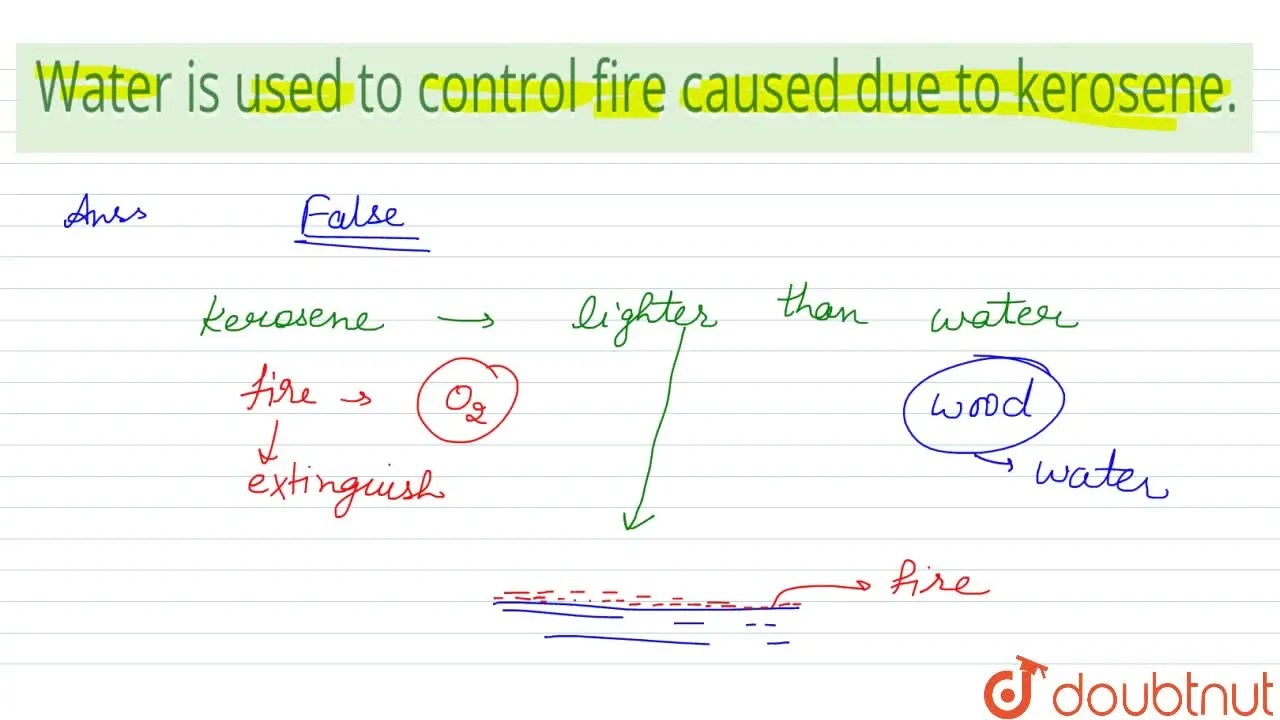 Water is used to control fire caused due to kerosene.
Anss False
Kerosene → lighter than water
fire → O2 wood
extinguish water
fire
doubtnut